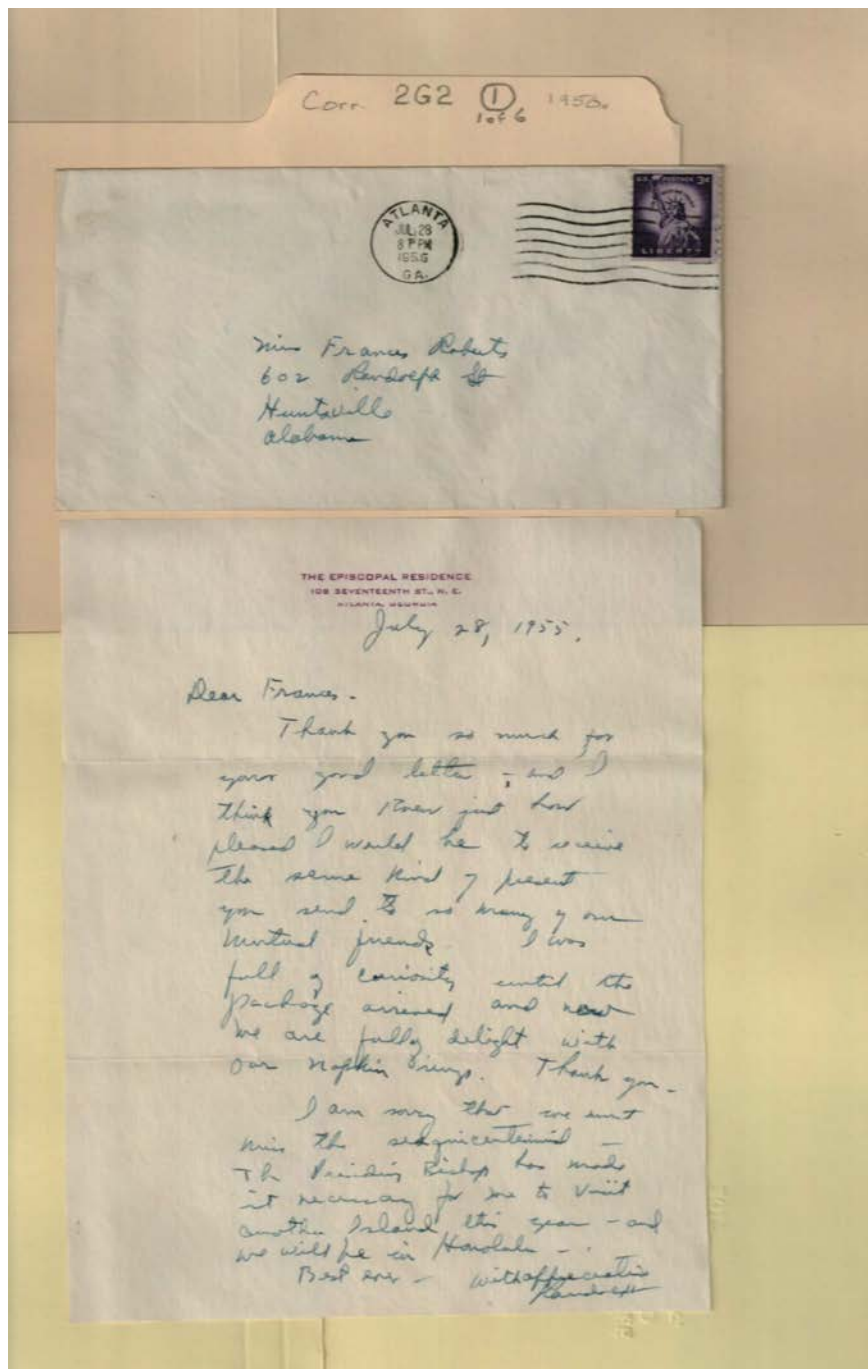 Corr. 2G2 1 1956.
1 of 6
ATLANTA
JUL 28
8 PM
1956
GA.
U.S. POSTAGE 3¢
LIBERTY
Miss Frances Roberts
602 Randolph St
Huntsville
Alabama
THE EPISCOPAL RESIDENCE
108 SEVENTEENTH ST., N. E.
ATLANTA, GEORGIA
July 28, 1955.
Dear Frances -
Thank you so much for
your good letter - and I
think you knew just how
pleased I would be to receive
the same kind of present
you send to so many of our
mutual friends. I was
full of curiosity until the
package arrived and now
we are fully delight with
our napkin rings. Thank you -
I am sorry that we must
miss the sesquicentennial -
The Presiding Bishop has made
it necessary for me to visit
another Island this year - and
we will be in Honolulu -
Best ever - with appreciation
Randolph